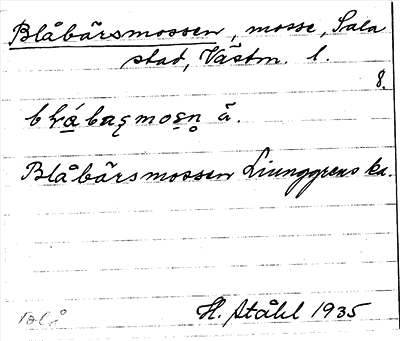 Blåbärsmossen, mosse, Sala
stad, Västm. l.
8.
Blåbärsmossen Liunggrens ka.
H. Ståhl 1935
Blå